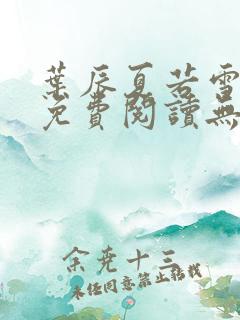 葉辰夏若雪
免費閱讀無
余堯十三
未經同意禁止轉載